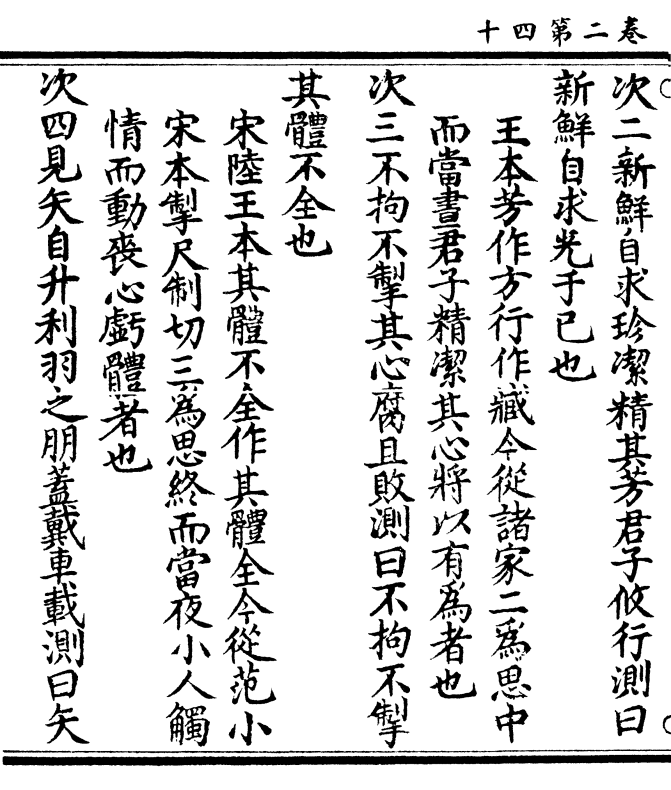 卷二第四十
次二新鮮自求珍潔精其芳君子攸行測曰
新鮮自求光于已也
王本芳作方行作藏今從諸家二爲思中
而當晝君子精潔其心將以有爲者也
次三不拘不掣其心腐且敗測曰不拘不掣
其體不全也
宋陸王本其體不全作其體全今從范小
宋本掣尺制切三爲思終而當夜小人觸
情而動喪心虧體者也
次四見矢自升利羽之朋蓋戴車載測曰矢